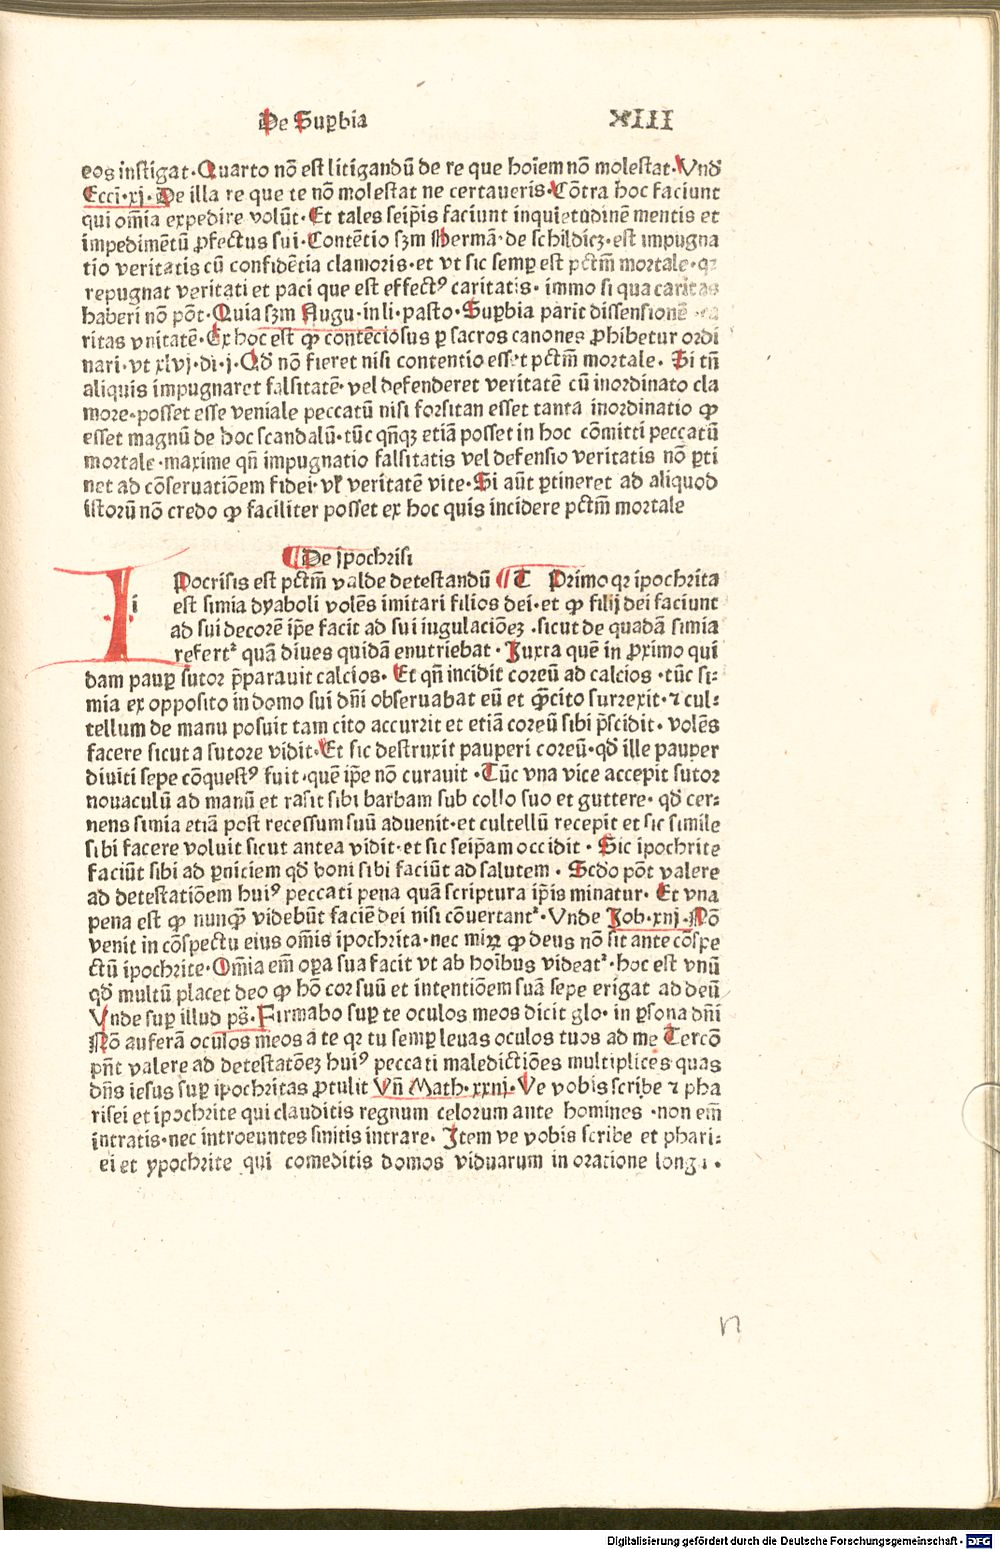 De Suꝑbia XIII
eos instigat·Quarto nō est litigandū de re que hoīem nō molestat·Vnđ
Ecci·xj·De illa re que te nō molestat ne certaueris·Cōtra hoc faciunt
qui om̄ia expedire volūt·Et tales seip̄is faciunt inquietudinē mentis et
impedimētū ꝓfectus sui·Contētio sꝫm Hermā·de schildicz·est impugna
tio veritatis cū confidētia clamoris·et vt sic semꝑ est pctm̄ mortale·qꝛ
repugnat veritati et paci que est effectꝰ caritatis· immo si qua caritas
haberi nō pōt·Quia sꝫm Augu·in li·pasto·Suꝑbia parit dissensionē
ritas vnitatē·Ex hoc est ꝙ contēciosus ꝑ sacros canones ꝓhibetur ordi
nari·vt xlvj·di·j·Qđ nō fieret nisi contentio esset pctm̄ mortale. Si tn̄
aliquis impugnaret falsitatē·vel defenderet veritatē cū inordinato cla
more·posset esse veniale peccatū nisi forsitan esset tanta inordinatio ꝙ
esset magnū de hoc scandalū·tūc qn̄qꝫ etiā posset in hoc cōmitti peccatū
mortale·maxime qn̄ impugnatio falsitatis vel defensio veritatis nō ꝑti
net ad cōseruatiōem fidei·vl̓ veritatē vite·Si aūt ꝑtineret ad aliquod
istorū nō credo ꝙ faciliter posset ex hoc quis incidere pctm̄ mortale
¶De ipochrisi
I i Pocrisis est pctm̄ valde detestandū ¶T Primo qꝛ ipochrita
est simia dyaboli volēs imitari filios dei·et ꝙ filij dei faciunt
ad sui decorē ip̄e facit ad sui iugulaciōeꝫ .sicut de quadā simia
refertᷣ quā diues quidā enutriebat·Juxta quē in ꝓximo qui
dam pauꝑ sutor p̄parauit calcios·Et qn̄ incidit coreū ad calcios ·tūc si⸗
mia ex opposito in domo sui dn̄i obseruabat eū et ꝙ̄cito surrexit·⁊ cul⸗
tellum de manu posuit tam cito accurrit et etiā coreū sibi p̄scidit· volēs
facere sicut a sutore vidit·Et sic destruxit pauperi coreū·qđ ille pauper
diuiti sepe cōquestꝰ fuit·quē ip̄e nō curauit ·Tūc vna vice accepit sutor
nouaculū ad manū et rasit sibi barbam sub collo suo et guttere· qđ cer⸗
nens simia etiā post recessum suū aduenit·et cultellū recepit et sic simile
sibi facere voluit sicut antea vidit·et sic seip̄am occidit · Sic ipochrite
faciūt sibi ad ꝑniciem qđ boni sibi faciūt ad salutem · Scđo pōt valere
ad detestatiōem huiꝰ peccati pena quā scriptura ip̄is minatur. Et vna
pena est ꝙ nunꝙ̄ videbūt faciē dei nisi cōuertantᷣ·Vnde Job·xnj·Nō
venit in cōspectu eius om̄is ipochrita·nec miꝝ ꝙ deus nō sit ante cōspe
ctū ipochrite·Om̄ia em̄ oꝑa sua facit vt ab hoībus videatᷣ·hoc est vnū
qđ multū placet deo ꝙ hō cor suū et intentiōem suā sepe erigat ad deū
Vnde suꝑ illud ps̄. Firmabo suꝑ te oculos meos dicit glo· in ꝑsona dn̄i
Nō auferā oculos meos a te qꝛ tu semꝑ leuas oculos tuos ad me Tercō
pn̄t valere ad detestatōeꝫ huiꝰ peccati maledictiōes multiplices quas
dn̄s iesus suꝑ ipochritas ꝓtulit Vn̄ Math·xxnj·Ve vobis scribe ⁊ pha
risei et ipochrite qui clauditis regnum celorum ante homines ·non em̄
intratis·nec introeuntes sinitis intrare. Item ve vobis scribe et phari⸗
ei et ypochrite qui comeditis domos viduarum in oratione longa·
n
Digitalisierung gefördert durch die Deutsche Forschungsgemeinschaft - DFG